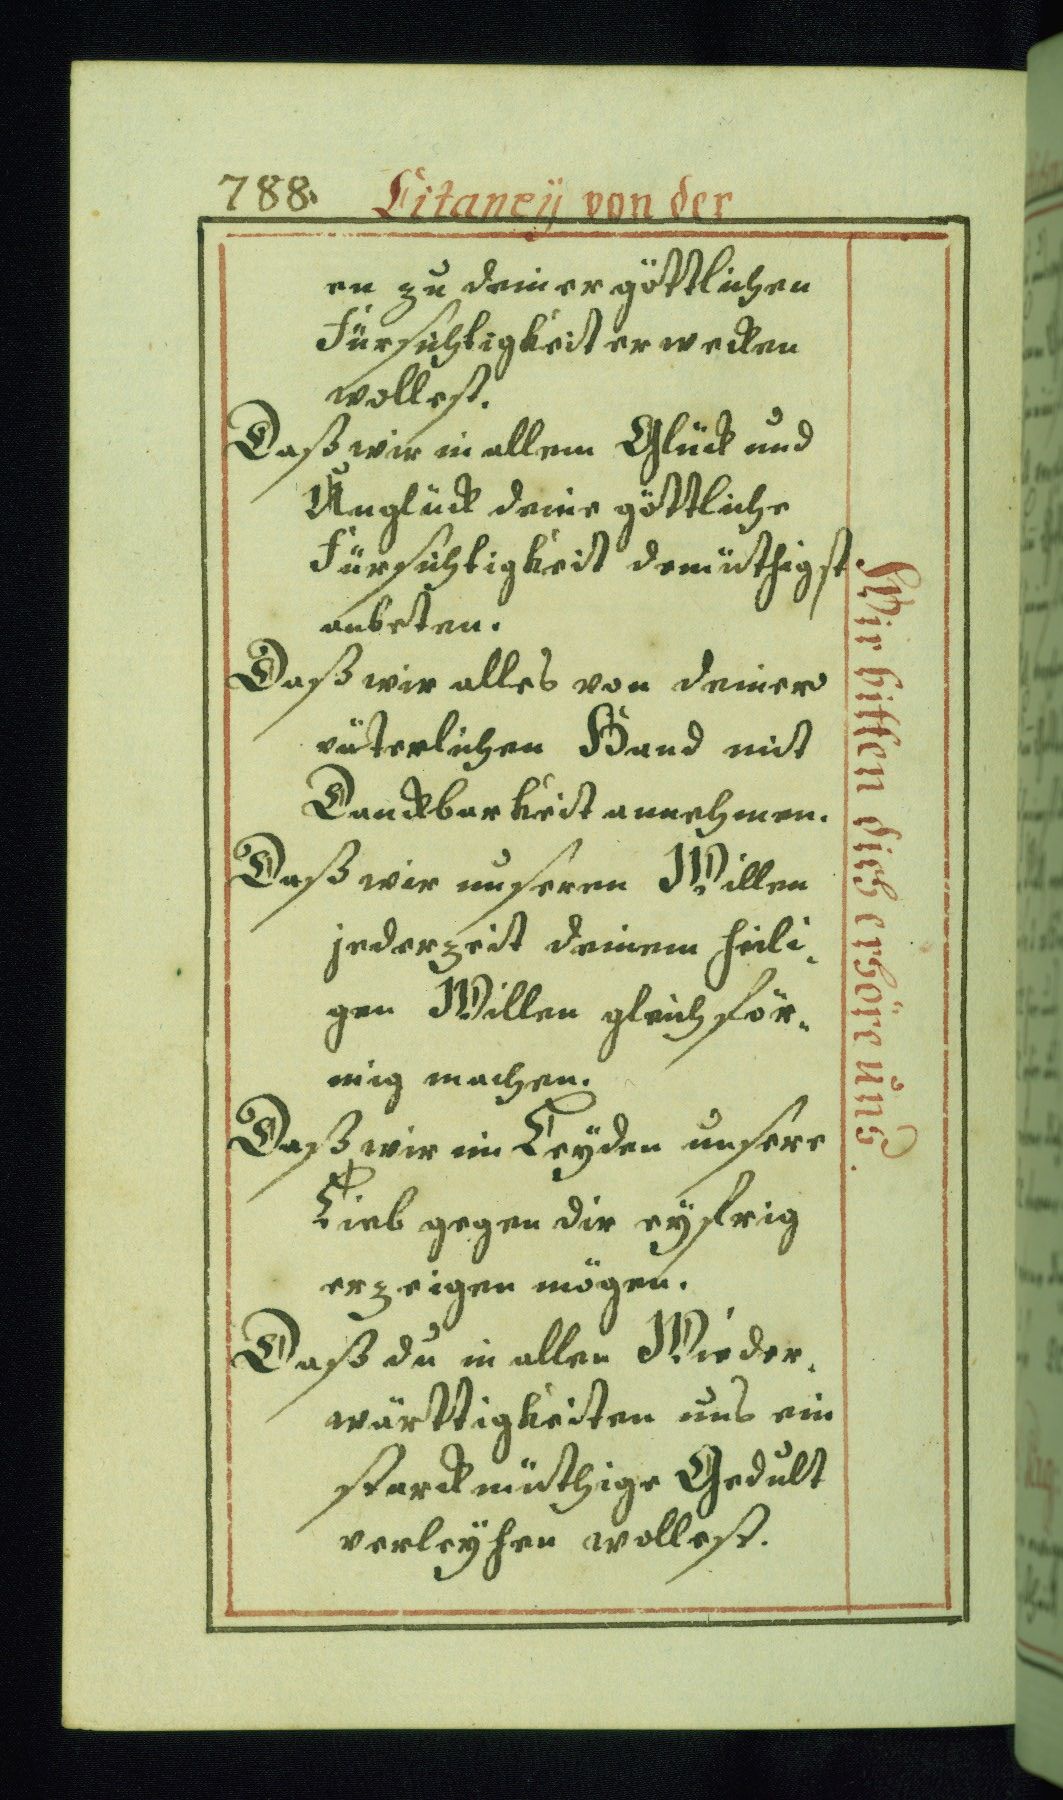 788. Litaneÿ von der
en zu deiner göttlichen
Fürsichtigkeit erwecken
wollest.
Daß wir in allem Glück und
Unglück deine göttliche
Fürsichtigkeit demüthigst
anbeten.
Daß wir alles von deiner
väterlichen Hand mit
Danckbarkeit annehmen.
Daß wir unseren Willen
jederzeit deinem heili-
gen Willen gleichför-
mig machen.
Daß wir im Leÿden unsere
Lieb gegen dir eÿfrig
erzeigen mögen.
Daß du in allen Wieder-
wärttigkeiten uns ein
starckmüthige Gedult
verleÿhen wollest.
Wir bitten dich erhöre uns.